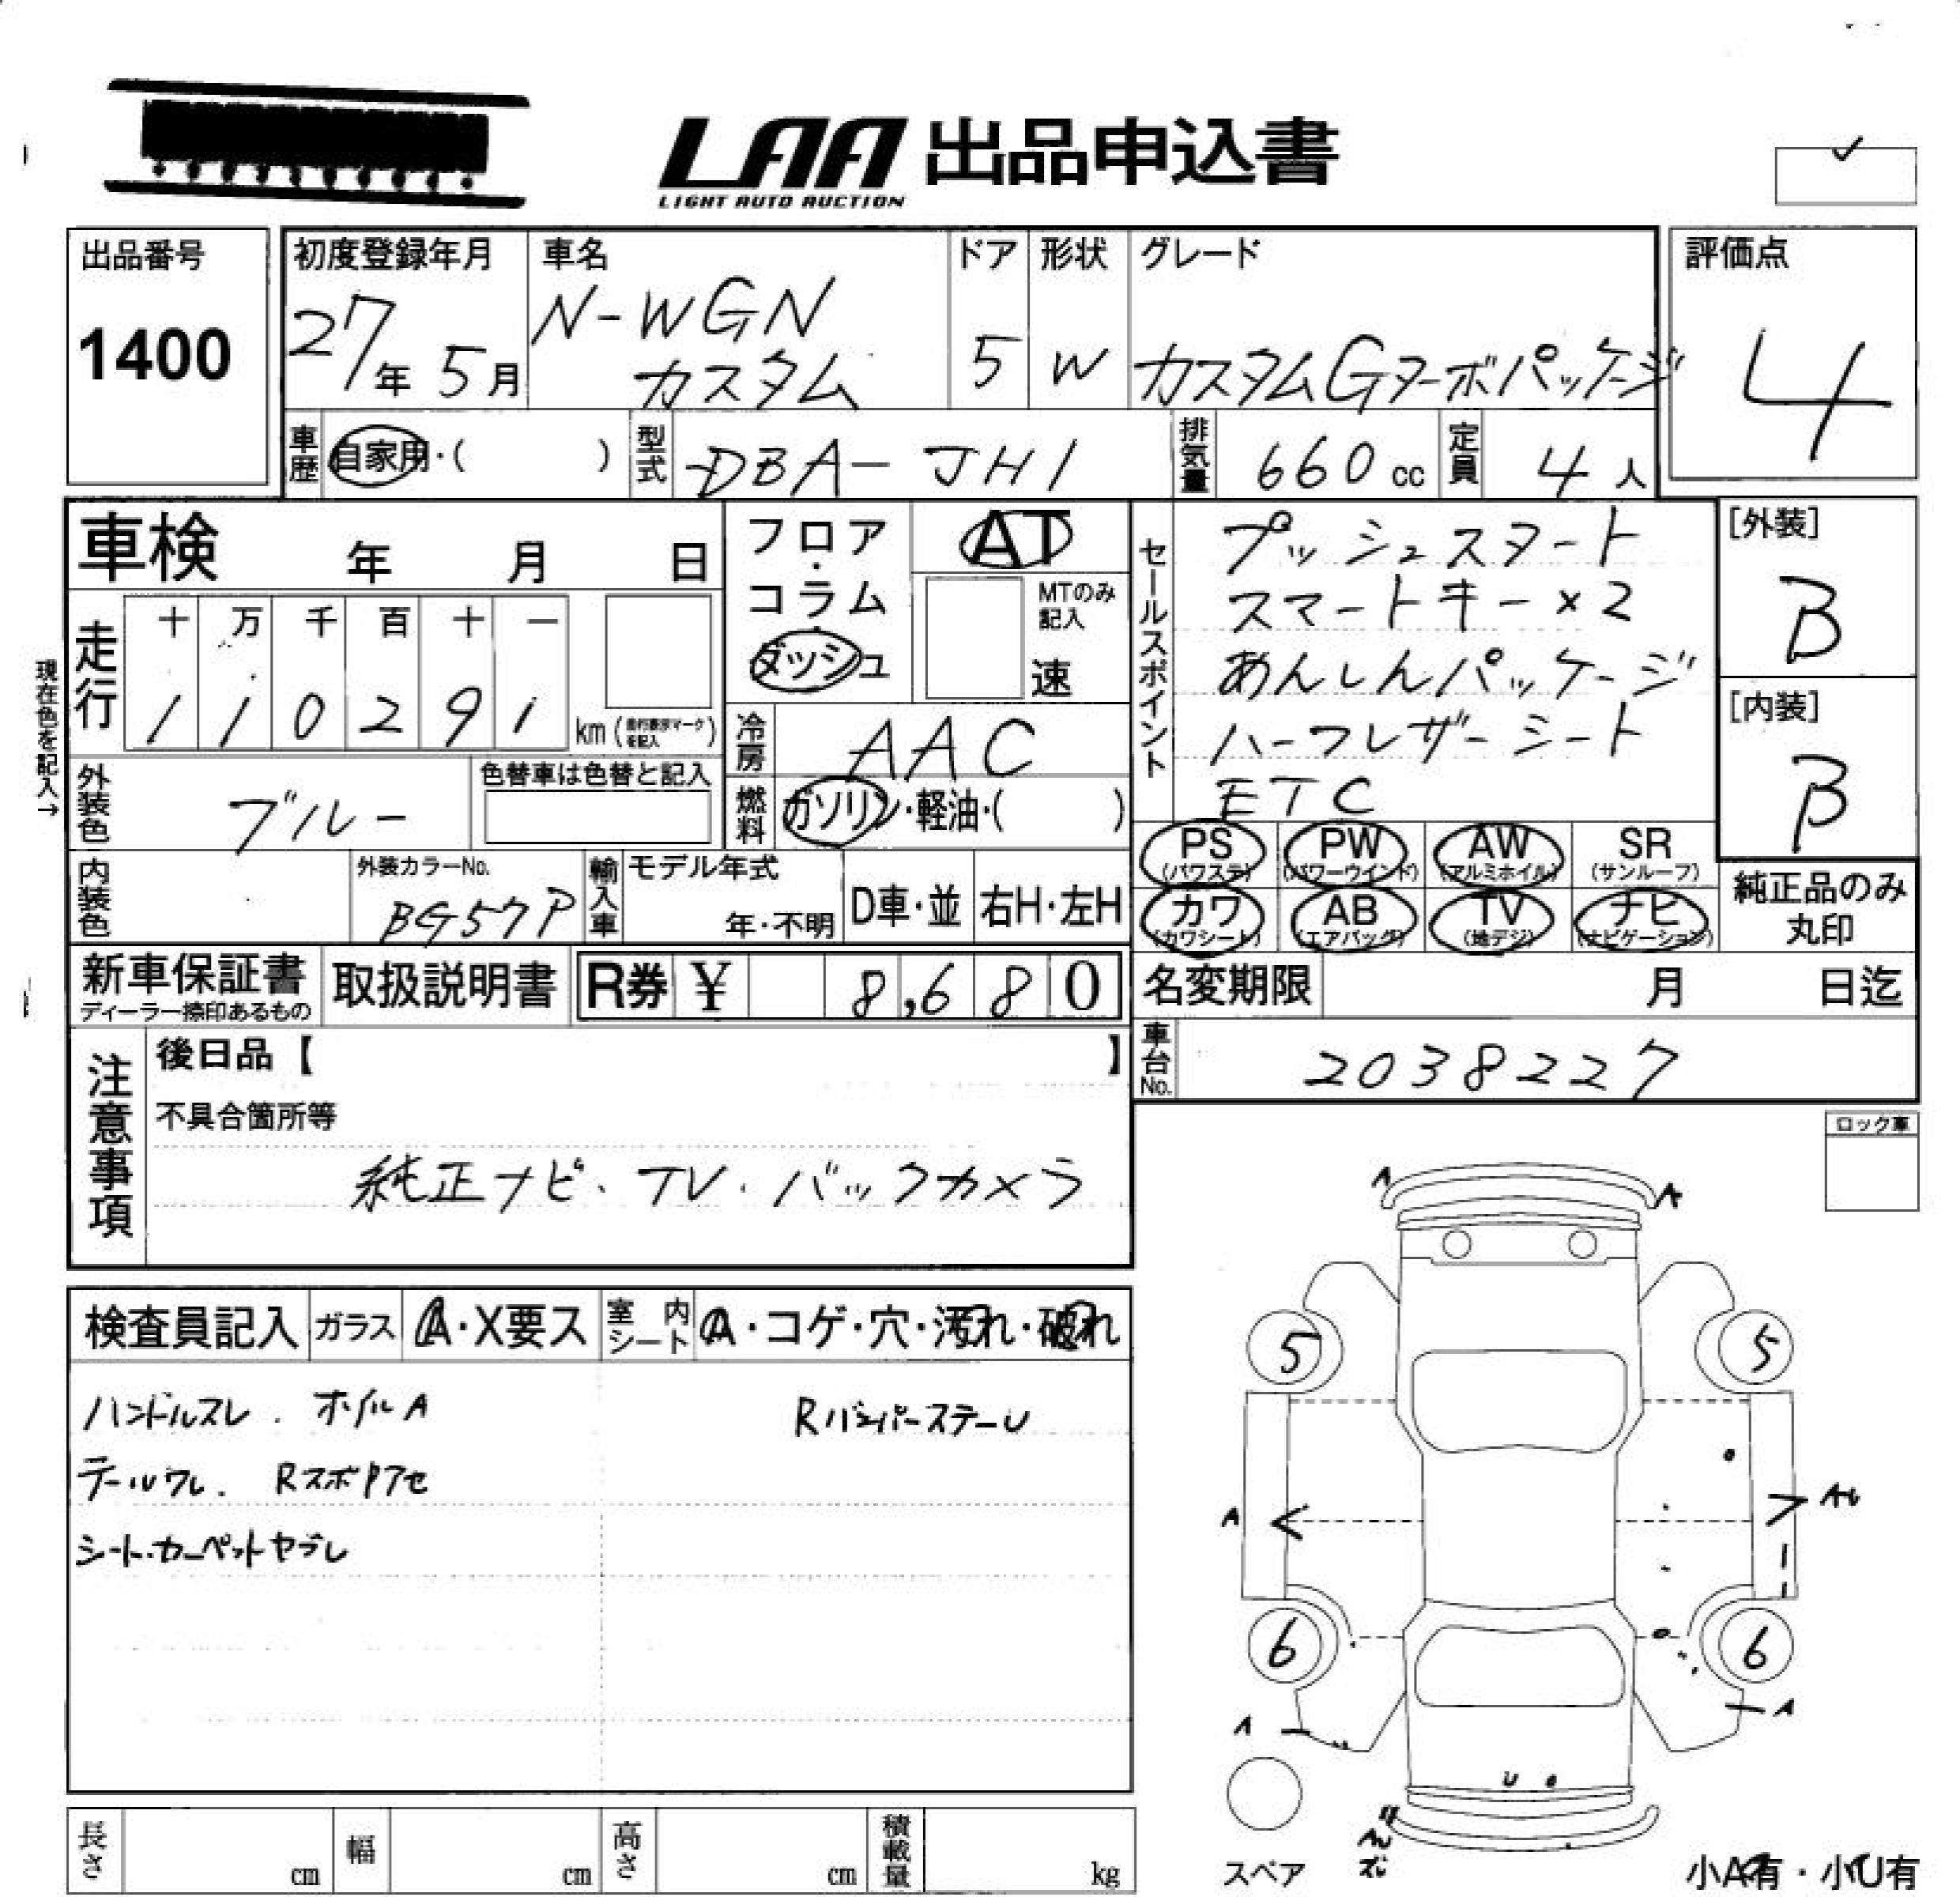 LAA 出品申込書
LIGHT AUTO AUCTION
出品番号
1400
初度登録年月
27年 5月
車名
N-WGN
カスタム
ドア
5
形状
W
グレード
カスタムGターボパッケージ
評価点
4
車歴 自家用・( )
型式 DBA-JH1
排気量 660 cc
定員 4 人
車検 年 月 日
現在色を記入→
走行
十 万 千 百 十 一
1 1 0 2 9 1
km (走行表示マークを記入)
フロア・
コラム・
ダッシュ
AT
MTのみ
記入
速
冷房 AAC
燃料 ガソリン・軽油・( )
セールスポイント
プッシュスタート
スマートキー×2
あんしんパッケージ
ハーフレザーシート
ETC
[外装]
B
[内装]
B
外装色 ブルー
色替車は色替と記入
内装色
外装カラーNo.
BG57P
輸入車
モデル年式
年・不明
D車・並
右H・左H
PS PW AW SR
(パワステ) (パワーウインド) (アルミホイル) (サンルーフ)
カワ AB TV ナビ
(カワシート) (エアバッグ) (地デジ) (ナビゲーション)
純正品のみ
丸印
新車保証書
ディーラー捺印あるもの
取扱説明書
R券 ¥ 8,680
名変期限 月 日迄
車台No. 2038227
注意事項
後日品【 】
不具合箇所等
純正ナビ・TV・バックカメラ
ロック車
検査員記入
ガラス A・X要ス
室内シート A・コゲ・穴・汚れ・破れ
ハンドルスレ . ホイルA
RバンパーステーU
テールワレ.
シート・カーペットヤブレ
A A
5 5
A
6 6
A A
U
スペア
小A有・小U有
長さ cm
幅 cm
高さ cm
積載量 kg